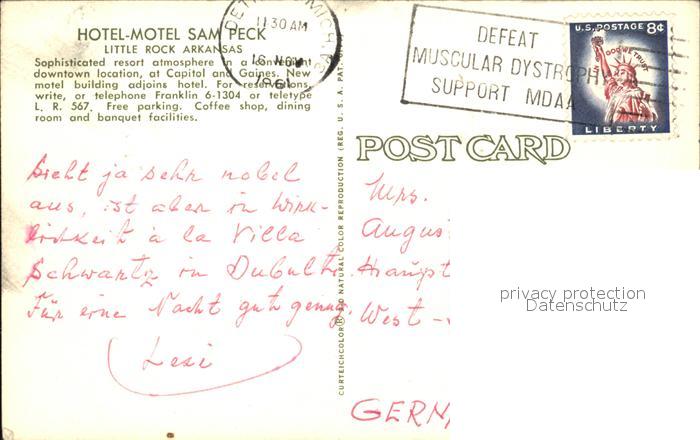 HOTEL-MOTEL SAM PECK
LITTLE ROCK ARKANSAS
Sophisticated resort atmosphere in a convenient
downtown location, at Capitol and Gaines. New
motel building adjoins hotel. For reservations,
write, or telephone Franklin 6-1304 or teletype
L. R. 567. Free parking. Coffee shop, dining
room and banquet facilities.
DETROIT, MICH.
11 30 AM
16 NOV
1961
DEFEAT
MUSCULAR DYSTROPHY
SUPPORT MDAA
U.S. POSTAGE 8¢
IN GOD WE TRUST
LIBERTY
POST CARD
Sieht ja sehr nobel
aus, ist aber in Wirk-
lichkeit à la Villa
Schwartz in Dubulti.
Für eine Nacht gut genug.
Lexi
CURTEICHCOLOR ® 3-D NATURAL COLOR REPRODUCTION (REG. U. S. A. PAT. OFF.)
Mrs.
Augus
Haupt
West -
GERM
privacy protection
Datenschutz